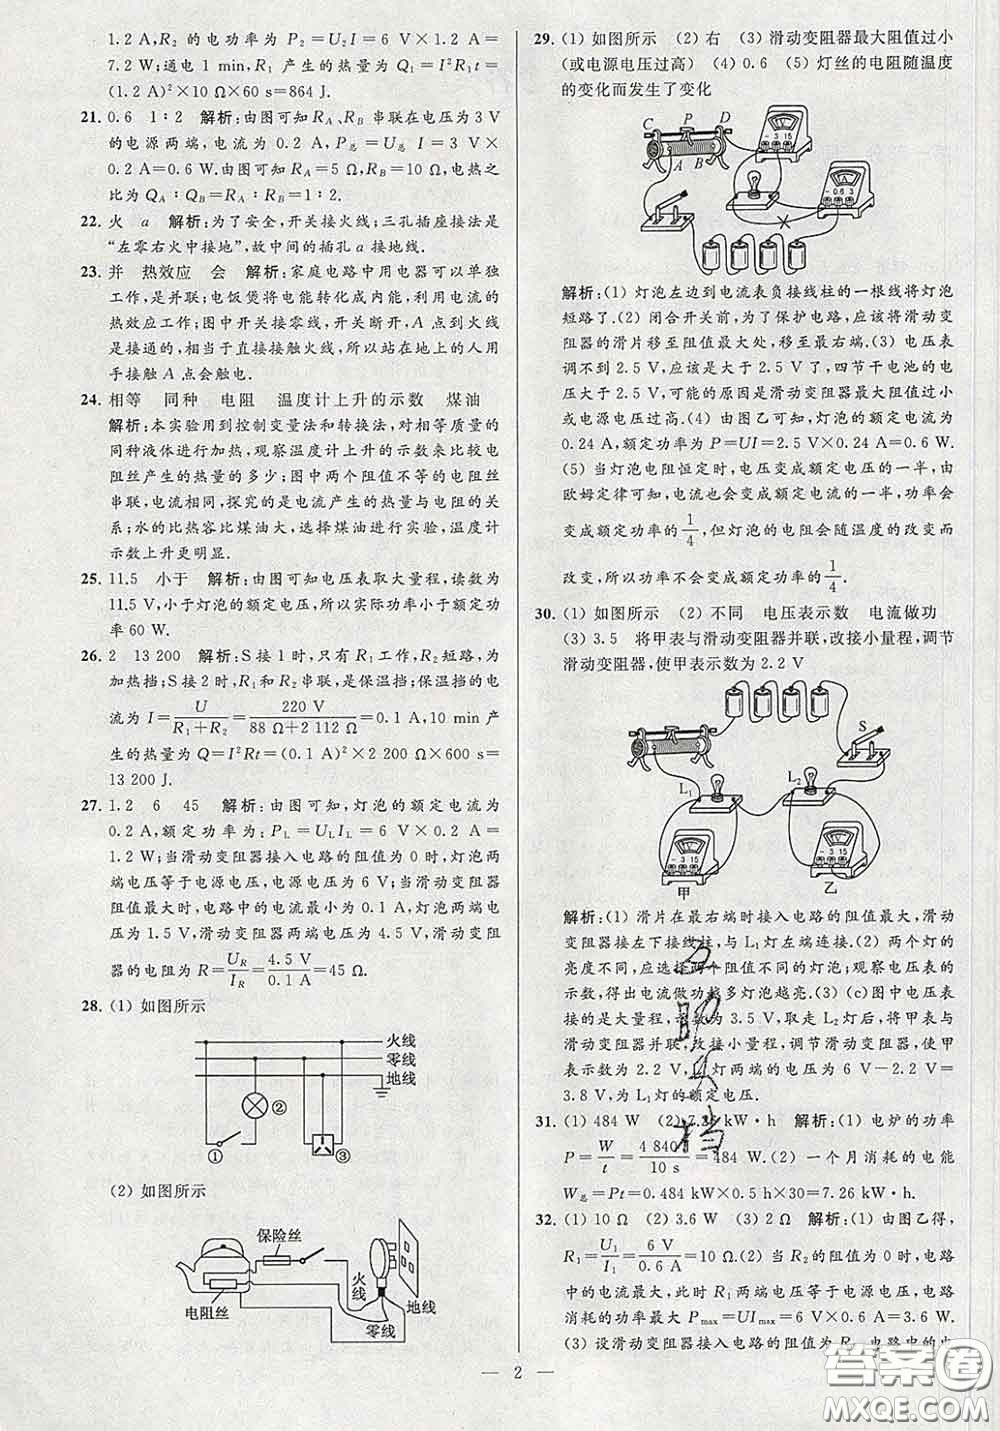 1.2 A,R₂ 的电功率为 P₂＝U₂I＝6 V×1.2 A＝
7.2 W;通电 1 min,R₁ 产生的热量为 Q₁＝I²R₁t＝
(1.2 A)²×10 Ω×60 s＝864 J.
21. 0.6 1∶2 解析:由图可知 R_A、R_B 串联在电压为 3 V
的电源两端,电流为 0.2 A,P总＝U总I＝3 V×
0.2 A＝0.6 W;由图可知 R_A＝5 Ω,R_B＝10 Ω,电热之
比为 Q_A∶Q_B＝R_A∶R_B＝1∶2.
22. 火 a 解析:为了安全,开关接火线;三孔插座接法是
“左零右火中接地”,故中间的插孔 a 接地线.
23. 并 热效应 会 解析:家庭电路中用电器可以单独
工作,是并联;电饭煲将电能转化成内能,利用电流的
热效应工作;图中开关接零线,开关断开,A 点到火线
是接通的,相当于直接接触火线,所以站在地上的人用
手接触 A 点会触电.
24. 相等 同种 电阻 温度计上升的示数 煤油
解析:本实验用到控制变量法和转换法,对相等质量的
同种液体进行加热,观察温度计上升的示数来比较电
阻丝产生的热量的多少;图中两个阻值不等的电阻丝
串联,电流相同,探究的是电流产生的热量与电阻的关
系;水的比热容比煤油大,选择煤油进行实验,温度计
示数上升更明显.
25. 11.5 小于 解析:由图可知电压表取大量程,读数为
11.5 V,小于灯泡的额定电压,所以实际功率小于额定功
率 60 W.
26. 2 13 200 解析:S 接 1 时,只有 R₁ 工作,R₂ 短路,为加
热挡;S 接 2 时,R₁ 和 R₂ 串联,是保温挡;保温挡的电
流为 I＝U/(R₁＋R₂)＝220 V/(88 Ω＋2 112 Ω)＝0.1 A,10 min 产
生的热量为 Q＝I²Rt＝(0.1 A)²×2 200 Ω×600 s＝
13 200 J.
27. 1.2 6 45 解析:由图可知,灯泡的额定电流为
0.2 A,额定功率为:P_L＝U_LI_L＝6 V×0.2 A＝
1.2 W;当滑动变阻器接入电路的阻值为 0 时,灯泡两
端电压等于电源电压,电源电压为 6 V;当滑动变阻器
阻值最大时,电路中的电流最小为 0.1 A,灯泡两端电
压为 1.5 V,滑动变阻器两端电压为 4.5 V,滑动变阻
器的电阻为 R＝U_R/I_R＝4.5 V/0.1 A＝45 Ω.
28. (1) 如图所示
火线
零线
地线
②
①
③
(2) 如图所示
保险丝
火线
地线
电阻丝
零线
29. (1) 如图所示 (2) 右 (3) 滑动变阻器最大阻值过小
(或电源电压过高) (4) 0.6 (5) 灯丝的电阻随温度
的变化而发生了变化
C P D
A B
－ 3 15
A
－ 0.6 3
解析:(1) 灯泡左边到电流表负接线柱的一根线将灯泡
短路了.(2) 闭合开关前,为了保护电路,应该将滑动变
阻器的滑片移至阻值最大处,移至最右端.(3) 电压表
调不到 2.5 V,应该是大于 2.5 V 了,四节干电池的电
压大于 2.5 V,可能的原因是滑动变阻器最大阻值过小
或电源电压过高.(4) 由图乙可知,灯泡的额定电流为
0.24 A,额定功率为 P＝UI＝2.5 V×0.24 A＝0.6 W.
(5) 当灯泡电阻恒定时,电压变成额定电压的一半,由
欧姆定律可知,电流也会变成额定电流的一半,功率会
变成额定功率的1/4,但灯泡的电阻会随温度的改变而
改变,所以功率不会变成额定功率的1/4.
30. (1) 如图所示 (2) 不同 电压表示数 电流做功
(3) 3.5 将甲表与滑动变阻器并联,改接小量程,调节
滑动变阻器,使甲表示数为 2.2 V
S
L₁ L₂
－ 3 15
－ 3 15
甲 乙
解析:(1) 滑片在最右端时接入电路的阻值最大,滑动
变阻器接左下接线柱,与 L₁灯左端连接.(2) 两个灯的
亮度不同,应选择两个阻值不同的灯泡;观察电压表的
示数,得出电流做功越多灯泡越亮.(3) (c)图中电压表
接的是大量程,示数为 3.5 V,取走 L₂灯后,将甲表与
滑动变阻器并联,改接小量程,调节滑动变阻器,使甲
表示数为 2.2 V,L₁灯两端的电压为 6 V－2.2 V＝
3.8 V,为 L₁灯的额定电压.
31. (1) 484 W (2) 7.26 kW·h 解析:(1) 电炉的功率
P＝W/t＝4 840 J/10 s＝484 W.(2) 一个月消耗的电能
W总＝Pt＝0.484 kW×0.5 h×30＝7.26 kW·h.
32. (1) 10 Ω (2) 3.6 W (3) 2 Ω 解析:(1) 由图乙得,
R₁＝U₁/I₁＝6 V/0.6 A＝10 Ω.(2) 当 R₂的阻值为 0 时,电路
中的电流最大,此时 R₁ 两端电压等于电源电压,电路
消耗的功率最大 Pmax＝UImax＝6 V×0.6 A＝3.6 W.
(3) 设滑动变阻器接入电路的阻值为 R₂,电路中的电
— 2 —
答案卷
MXQE.COM